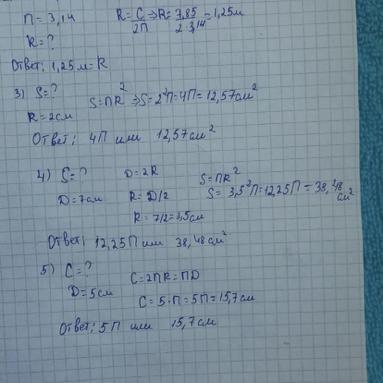 П = 3,14 R = C/2П ⇒ R = 7,85/2·3,14 = 1,25м
R = ?
Ответ: 1,25 м = R
3) S = ?
S = ПR² ⇒ S = 2²П = 4П = 12,57 см²
R = 2см
Ответ: 4П или 12,57 см²
4) S = ? D = 2R S = ПR²
D = 7см R = D/2 S = 3,5²П = 12,25П = 38,48 см²
R = 7/2 = 3,5см
Ответ: 12,25П или 38,48 см²
5) C = ?
C = 2ПR = ПD
D = 5см
C = 5·П = 5П = 15,7 см
Ответ: 5П или 15,7 см